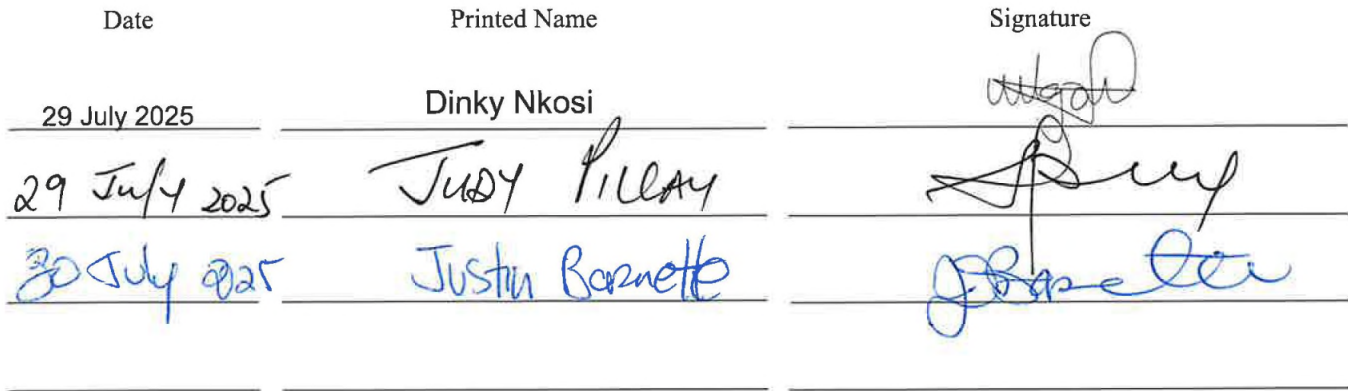 Date Printed Name Signature
29 July 2025 Dinky Nkosi
29 July 2025 JUDY PILLAY
30 July 2025 Justin Barnette J Barnette